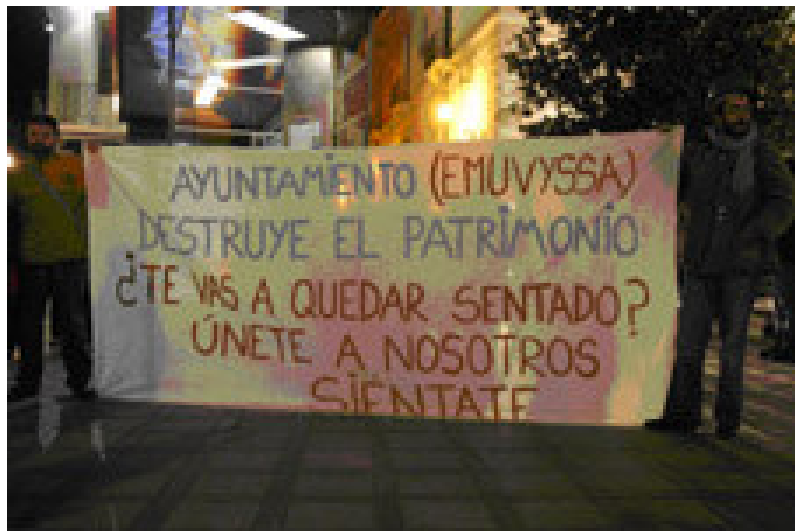 AYUNTAMIENTO (EMUVYSSA)
DESTRUYE EL PATRIMONIO
¿TE VAS A QUEDAR SENTADO?
ÚNETE A NOSOTROS
SIÉNTATE